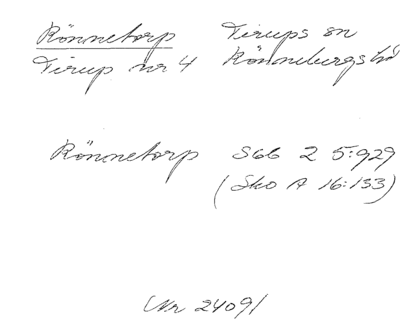 Rönnetorp Tirups sn
Tirup nr 4 Rönnebergs hd
Rönnetorp SGG 2 5:929
(Sko A 16:133)
Nr 24091